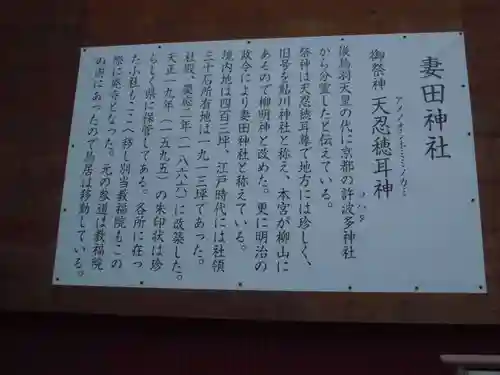 妻田神社
アメノオシホミミノカミ
御祭神 天忍穂耳神
ハタ
後鳥羽天皇の代に京都の許波多神社
から分霊したと伝えている。
祭神は天忍穂耳尊で地方には珍しく、
旧号を鮎川神社と称え、本宮が柳山に
あるので柳明神と改めた。更に明治の
政令により妻田神社と称えている。
境内地は四百三坪、江戸時代には社領
三十石所有地は一九一三坪であった。
社殿、慶応二年(一八六六)に改築した。
天正一九年(一五九五)の朱印状は珍
らしく県に保管してある。各所に在っ
た小社もここへ移し別当教福院もこの
際に廃寺となった。元の参道は教福院
の南にあったので鳥居は移動している。